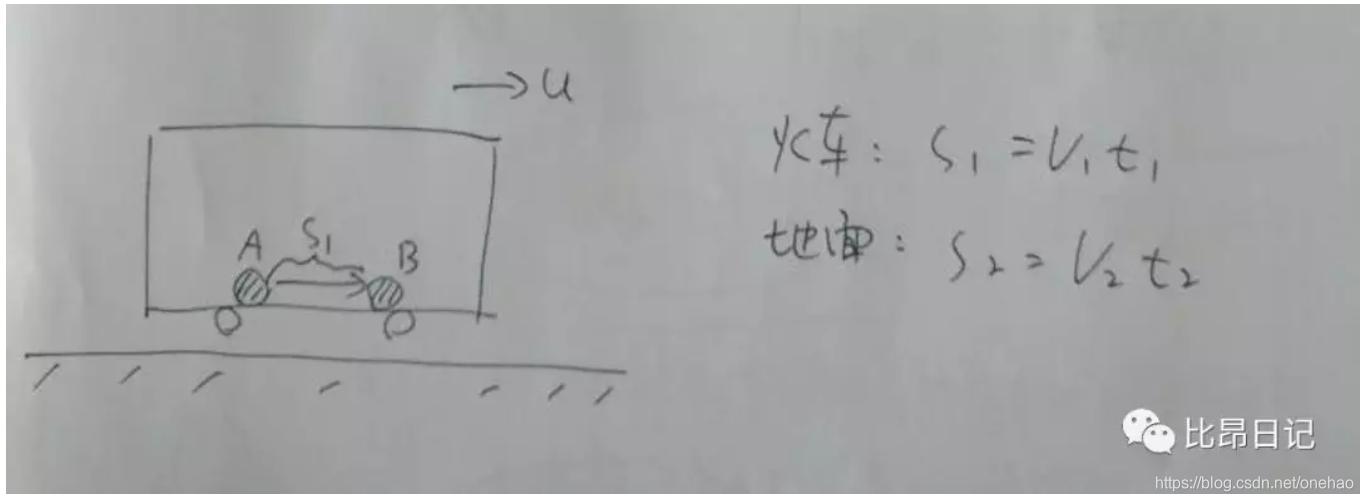 → u
火车: S₁ = V₁ t₁
地面: S₂ = V₂ t₂
A S₁ B
比昂日记
https://blog.csdn.net/onehao